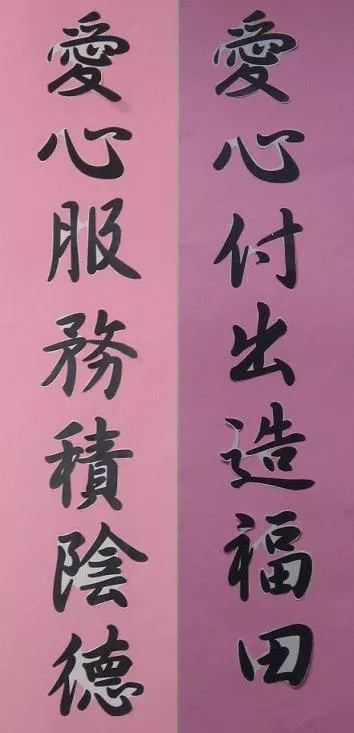 愛心付出造福田
愛心服務積陰德